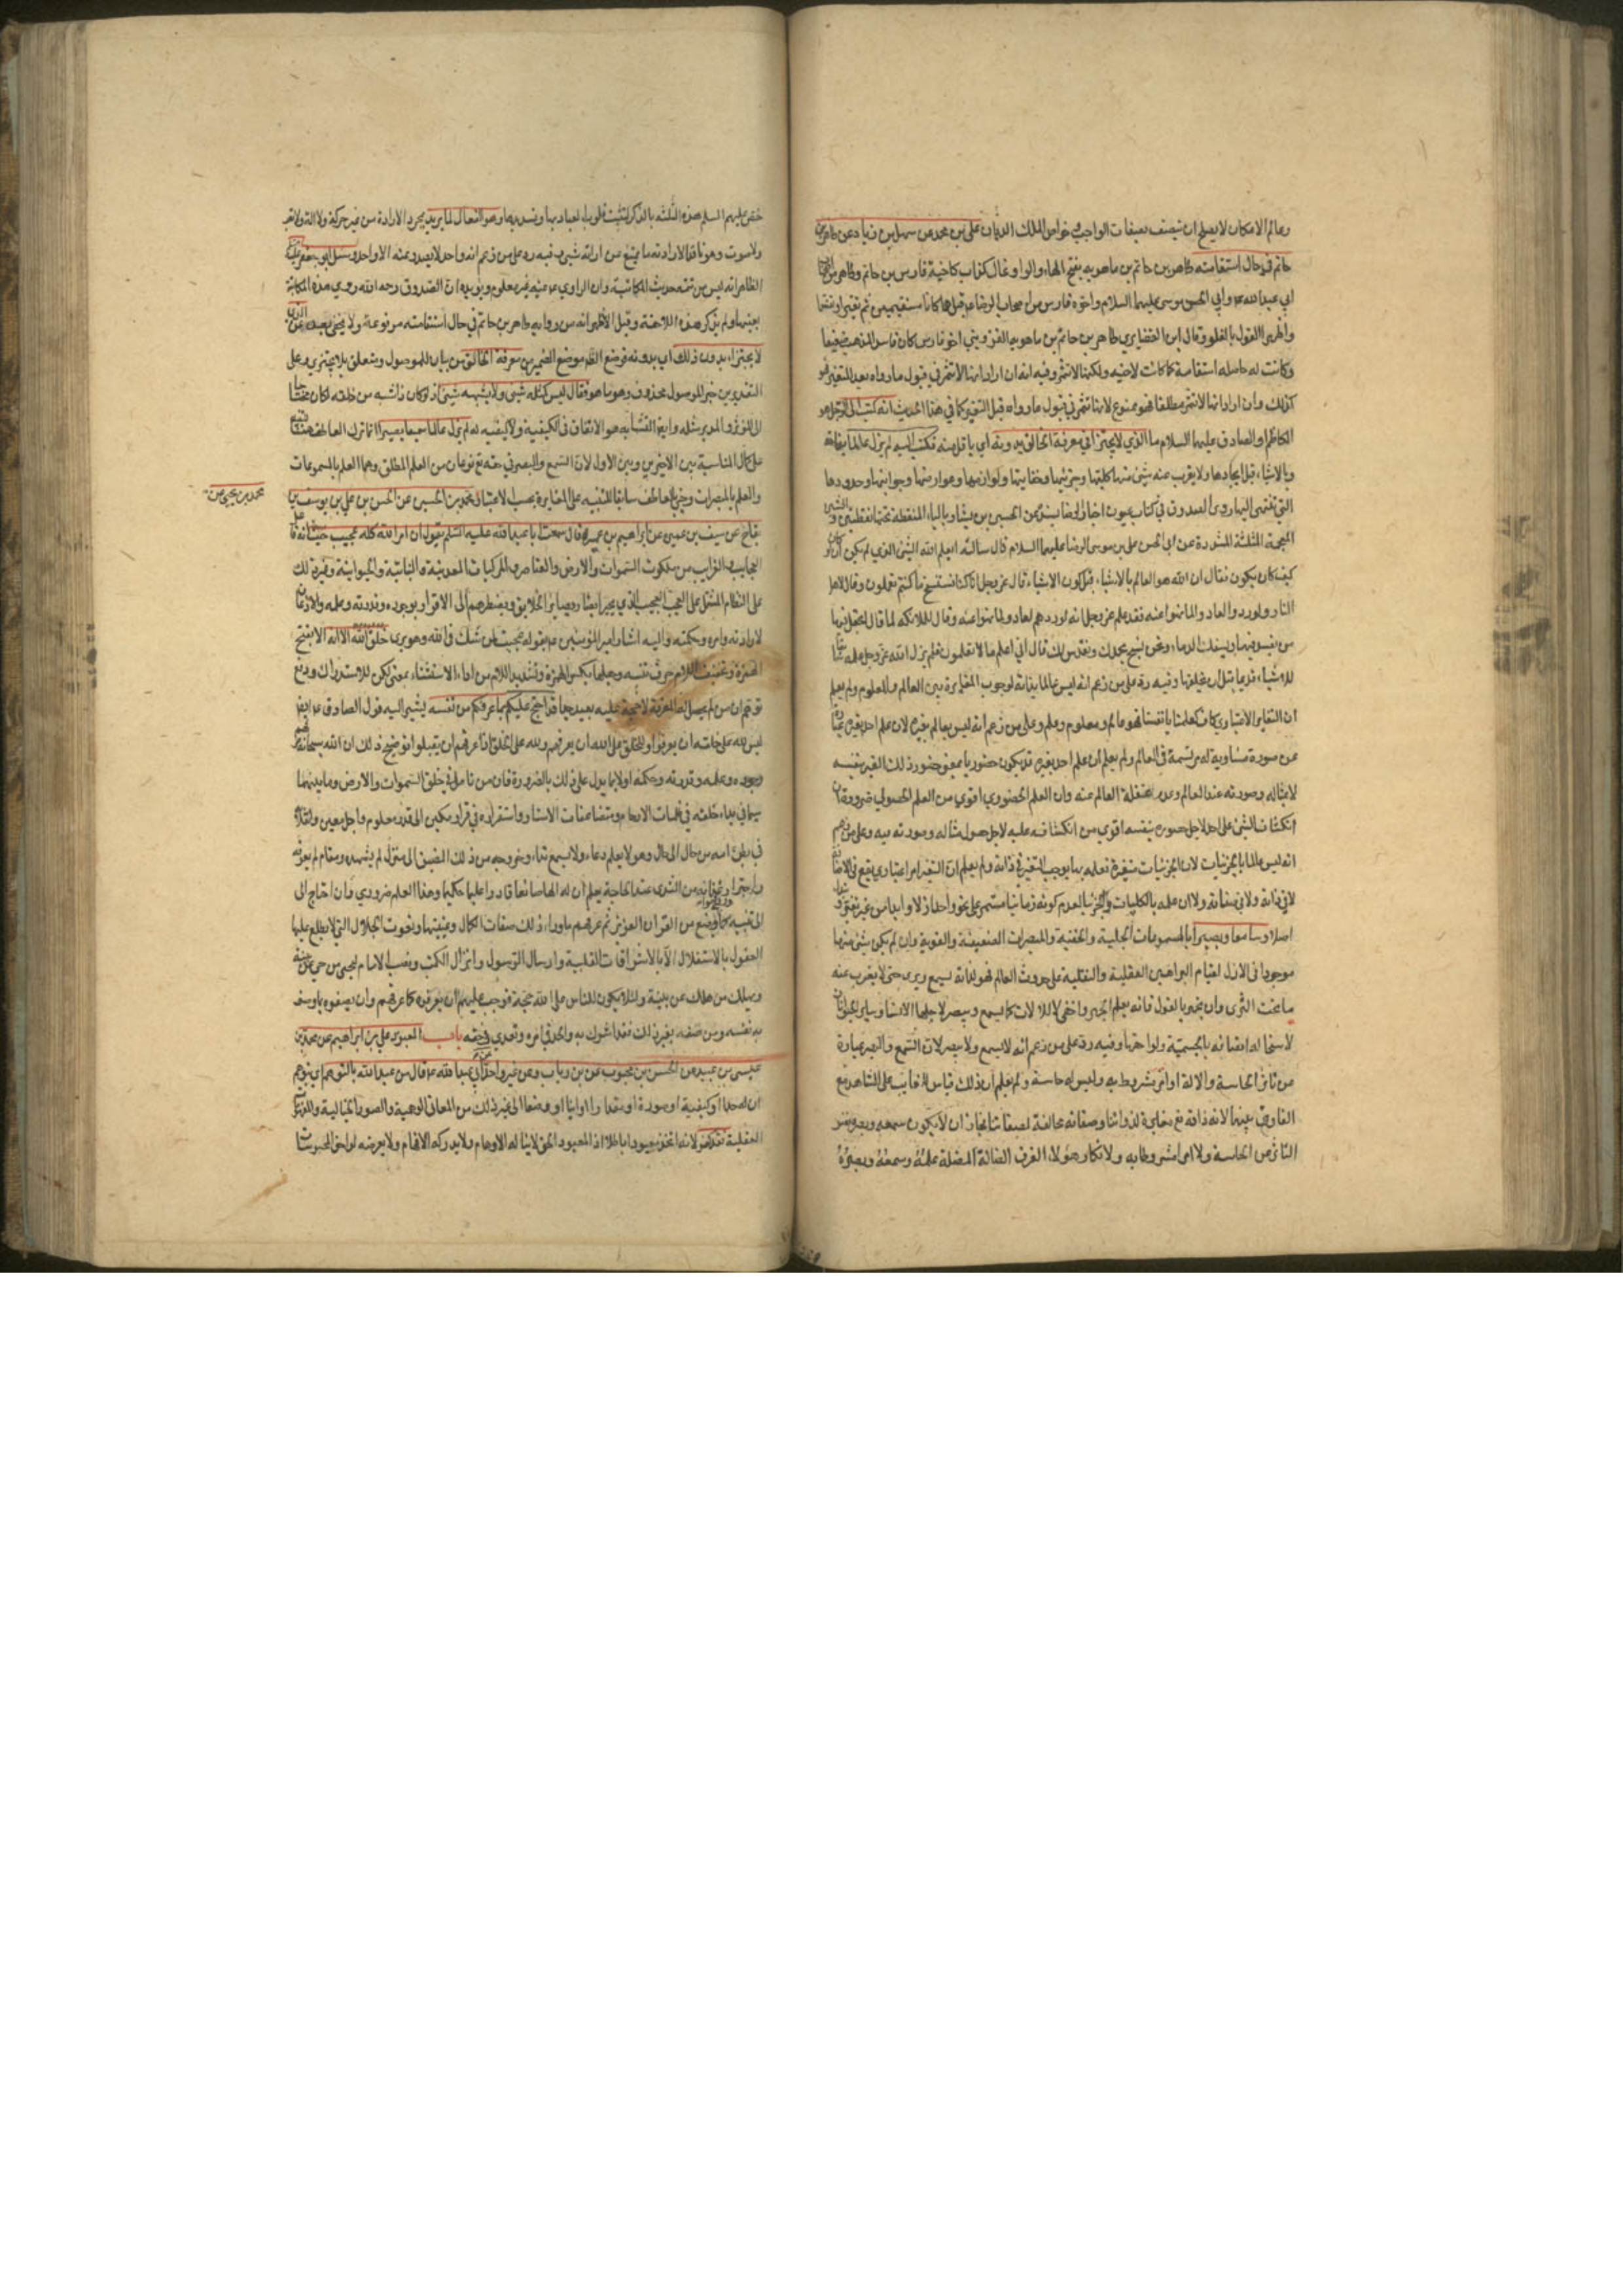 وعالم الامكان لا يصلح ان يتصف بصفات الواجب وخواص الملك الديان علي بن محمد عن سهل بن زياد عن طاهر بن
حاتم في حال استقامته طاهر بن حاتم بن ماهويه بفتح الهاء والواو غال كذاب كاخيه فارس بن حاتم وطاهر من اصحاب
ابي عبد الله ع وابي الحسن موسى عليهما السلام واخوه فارس من اصحاب الرضا ع قيل هما كانا مستقيمين ثم تغيرا
واظهرا القول بالغلو وقال ابن الغضايري طاهر بن حاتم بن ماهويه القزويني اخو فارس كان فاسد المذهب ضعيفا
وكانت له حاصله استقامة كما كانت لاخيه ولكنها لا تثمر وفيه انه ان اراد انها لا تثمر في قبول ما رواه بعد التغير فهو
كذلك وان اراد انها لا تثمر مطلقا فهو ممنوع لانها تثمر في قبول ما رواه قبل التغير كما في هذا الحديث انه كتب الى الرجل هو
الكاظم او الصادق عليهما السلام ما الذي لا يجتزأ في معرفة الخالق بدونه اي باقل منه فكتب اليه لم يزل عالما بذاته
وبالاشياء قبل ايجادها ولا يعزب عنه شيء منها كليتها وجزئيتها وحقايقها ولوازمها وعوارضها وجواتها وحدودها
التي تنتهي اليها روى الصدوق في كتاب عيون اخبار الرضا بسنده عن الحسين بن بشار بالباء المنقطة تحتها نقطتين والشين
المعجمة المثلثة المشددة عن ابي الحسن علي بن موسى الرضا عليهما السلام قال سالته ايعلم الله الشيء الذي لم يكن ان لو كان
كيف كان يكون فقال ان الله هو العالم بالاشياء قبل كون الاشياء قال عز وجل انا كنا نستنسخ ما كنتم تعملون وقال لاهل
النار ولو ردوا لعادوا لما نهوا عنه فقد علم عز وجل انه لو ردهم لعادوا لما نهوا عنه وقال للملائكة لما قالوا اتجعل فيها
من يفسد فيها ويسفك الدماء ونحن نسبح بحمدك ونقدس لك قال اني اعلم ما لا تعلمون فلم يزل الله عز وجل علمه سابقا
للاشياء قديما قبل ان يخلقها وفيه رد على من زعم انه ليس عالما بذاته لوجوب المغايرة بين العالم والمعلوم ولم يعلم
ان التغاير الاعتباري كاف كعلمنا بانفسنا فهو عالم ومعلوم وعلم وعلى من زعم انه ليس بعالم بغيره لان علم احد بغيره عبارة
عن صورة مساوية له مرتسمة في العالم ولم يعلم ان علم احد بغيره قد يكون حضوريا بمعنى حضور ذلك الغير بنفسه
لا بمثاله وصورته عند العالم وعدم غفلة العالم عنه وان العلم الحضوري اقوى من العلم الحصولي ضرورة ان
انكشاف الشيء على احد لاجل حضوره بنفسه اقوى من انكشافه عليه لاجل حصول مثاله وصورته فيه وعلى من زعم
انه ليس عالما بالجزئيات لان الجزئيات متغيرة فعلمه بها يوجب التغير في ذاته ولم يعلم ان التغير امر اعتباري يقع في الاضافات
لا في ذاته ولا في صفاته ولا ان علمه بالكليات والجزئيات لعدم كونه زمانيا مستمر على نحو واحد ازلا وابدا من غير تغير
اصلا وسامعا وبصيرا بالمسموعات الجلية والخفية والمبصرات الضعيفة والقوية وان لم يكن شيء منها
موجودا في الازل لقيام البراهين العقلية والنقلية على حدوث العالم فهو لذاته يسمع ويرى حتى لا يعزب عنه
ما تحت الثرى وان تجهر بالقول فانه يعلم الجهر واخفى لا بالالات كما يسمع ويبصر لاجلها الانسان وساير الحيوان
لاستحالة اتصافه بالجسمية ولواحقها وفيه رد على من زعم انه لا يسمع ولا يبصر لان السمع والبصر عبارة
عن تاثر الحاسة والالة او امر مشروط به وليس له حاسة ولم يعلم ان ذلك قياس الغايب على الشاهد مع
الفارق بينهما لان ذاته مع مغايرة لذواتنا وصفاته مخالفة لصفاتنا فجاز ان لا يكون سمعه وبصره نفس
التاثر من الحاسة ولا امرا مشروطا به ولانكار هؤلاء الفرق الضالة المضلة علمه وسمعه وبصره
خص عليهم السلم هذه الثلثة بالذكر لتثبت قلوب العباد بها وتسديدها وهو الفعال لما يريد بمجرد الارادة من غير حركة ولا الة ولا تعب
ولا صوت وهو نافذ الارادته ما يمتنع عن ارادته شيء وفيه رد على من زعم انه واحد لا يصدر عنه الا واحد وسئل ابو جعفر ع
الظاهر انه ليس من تتمة حديث المكاتبة وان الراوي عنه غير معلوم ويؤيده ان الصدوق رحمه الله روى هذه المكاتبة
بعينها ولم يذكر هذه اللاحقة وقيل الاظهر انه من رواية طاهر بن حاتم في حال استقامته مرفوعة ولا يخفى بعده عن الذي
لا يجتزء بدون ذلك اي بدونه فوضع الظاهر موضع الضمير من معرفة الخالق من بيان للموصول ومتعلق بلا يجتزي وعلى
التقديرين خبر الموصول محذوف وهو ما هو فقال ليس كمثله شيء ولا يشبهه شيء اذ لو كان ذاته شبه من خلقه لكان محتاجا
الى المؤثر والمدبر مثله وايضا التشابه هو الاتفاق في الكيفية ولا كيفية له لم يزل عالما سميعا بصيرا انما ترك العاطف هنا تنبيها
على كمال المناسبة بين الاخيرين وبين الاول لان السمع والبصر في حقه تع نوعان من العلم المطلق وهما العلم بالمسموعات
والعلم بالمبصرات وجيء بالعاطف سابقا للتنبيه على المغايرة بحسب الاعتبار محمد بن الحسين عن الحسن بن علي بن يوسف بن
محمد بن يحيى عن
بقاح عن سيف بن عميرة عن ابراهيم بن عمر قال سمعت ابا عبد الله عليه السلم يقول ان امر الله كله عجيب
العجايب والغرايب من ملكوت السموات والارض والعناصر والمركبات المعدنية والنباتية والحيوانية وغير ذلك
على النظام المشتمل على العجب العجيب الذي يحير ابصار وبصاير الخلايق ويضطرهم الى الاقرار بوجوده وقدرته وعلمه والاذعان
لارادته وامره وحكمته واليه اشار امير المؤمنين ع بقوله عجبت لمن شك في الله وهو يرى خلق الله الا انه الا بفتح
الهمزة وتخفيف اللام حرف تنبيه وجعلها بكسر الهمزة وتشديد اللام من اداة الاستثناء بمعنى لكن للاستدراك ودفع
توهم ان من لم يحصل له المعرفة لا حجة عليه بعيد جدا قد احتج عليكم بما عرفكم من نفسه يشير اليه قول الصادق ع ايضا
ليس لله على خلقه ان يعرفوا وللخلق على الله ان يعرفهم ولله على الخلق اذا عرفهم ان يقبلوا توضيح ذلك ان الله سبحانه عرفهم
وجوده وعلمه وقدرته وحكمته اولا بما يدل على ذلك بالضرورة فان من تامل في خلق السموات والارض وما بينهما
سيما في مبدء خلقته في ظلمات الارحام ومتضاعفات الاستار واستقراره في قرار مكين الى قدر معلوم واجل معين وانقلابه
في بطن امه من حال الى حال وهو لا يعلم دعاء ولا يسمع نداء وخروجه من ذلك المضيق الى منزل لم يشهده ومقام لم يعرفه
واجتراره غذائه من الثدي عند الحاجة يعلم ان له الها صانعا قادرا عليما حكيما وهذا العلم ضروري فان احتاج الى
تنبيه كما وقع في مواضع من القران العزيز ثم عرفهم ما وراء ذلك صفات الكمال وعينيتها ونعوت الجلال التي لا يطلع عليها
العقول بالاستقلال الا بالاشراقات القلبية وارسال الرسول وانزال الكتب ونصب الامام ليحيى من حي عن بينة
ويهلك من هلك عن بينة ولئلا يكون للناس على الله حجة فوجب عليهم ان يعرفوه كما عرفهم وان يصفوه بما وصف
به نفسه ومن صفه بغير ذلك فقد اشرك به والحد في امره وتعدى في حقه باب المعبود علي بن ابراهيم عن محمد بن
عيسى بن عبيد عن الحسن بن محبوب عن بن رياب وعن غير واحد عن ابي عبد الله ع قال من عبد الله بالتوهم اي يتوهم
ان له حدا او كيفية او صورة او مقدارا او اينا او وضعا الى غير ذلك من المعاني الوهمية والصور الخيالية والمدركات
العقلية فقد كفر لانه اتخذ معبودا باطلا اذ المعبود الحق لا يناله الاوهام ولا يدركه الافهام ولا يعرضه لواحق المحسوسات